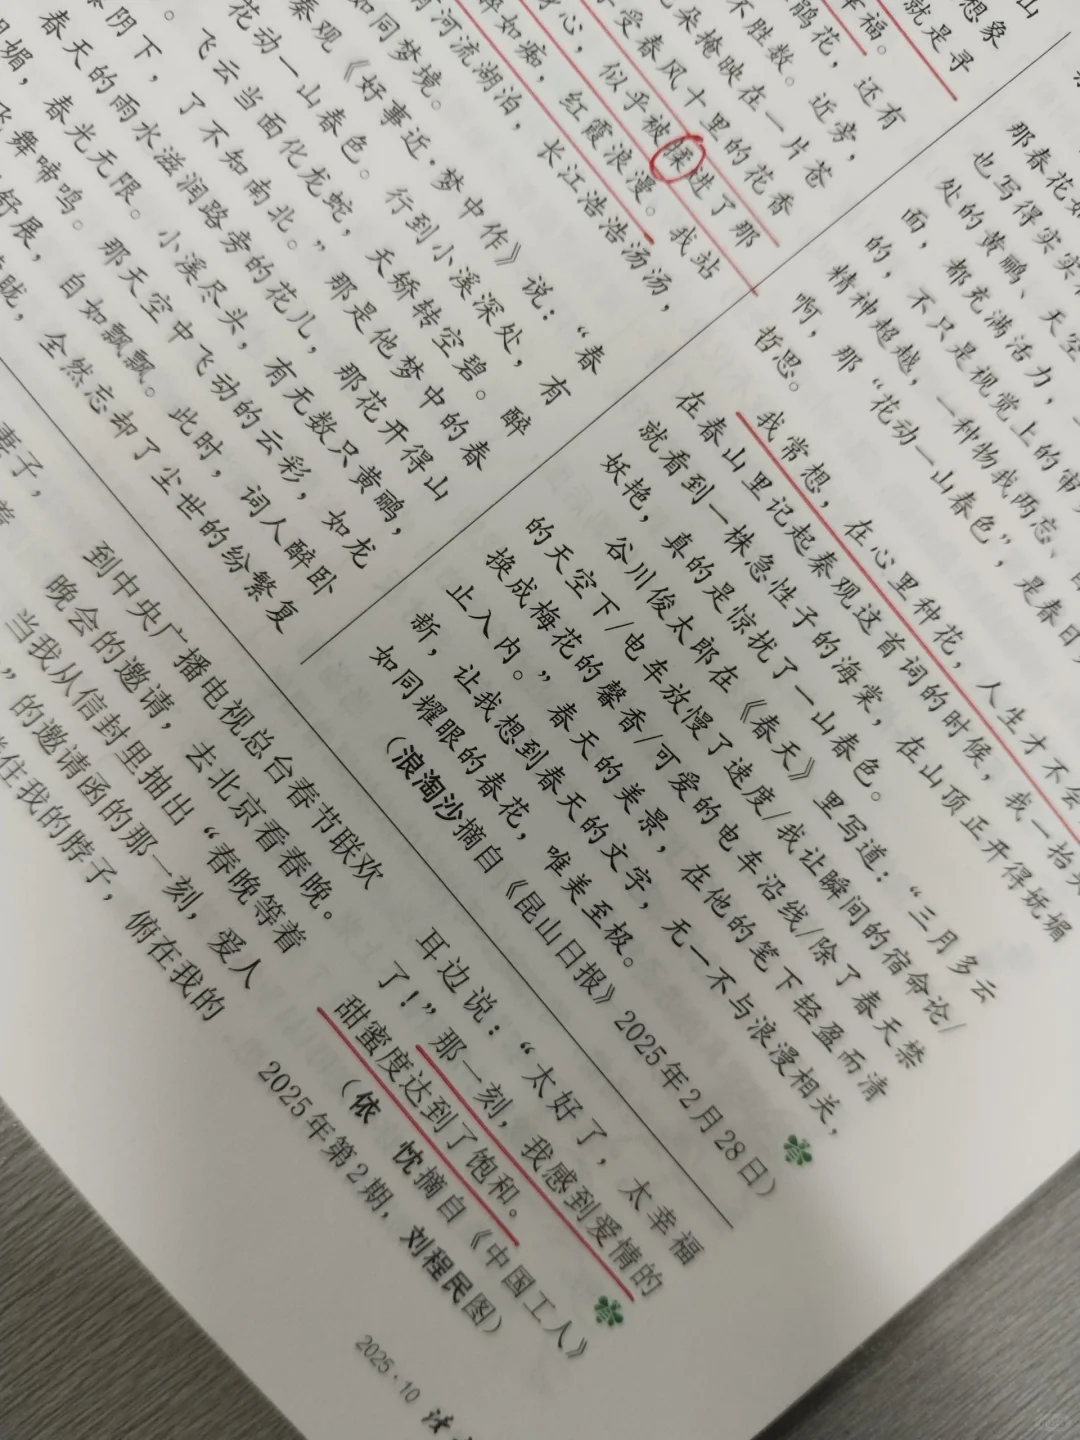 山
想象
就是寻
幸福。
鹃花，还有
不胜数。近旁，
朵掩映在一片苍
受春风十里的花香
身心，似乎被揉进了那
醉如痴，红霞浪漫。我站
河流湖泊，长江浩浩汤汤，
如同梦境。
秦观《好事近·梦中作》说：“春
花动一山春色。行到小溪深处，有
飞云当面化龙蛇，夭矫转空碧。醉
阴下，了不知南北。”那是他梦中的春
春天的雨水滋润路旁的花儿，那花开得山
媚，春光无限。小溪尽头，有无数只黄鹂，
飞舞啼鸣。那天空中飞动的云彩，如龙
舒展，自如飘飘。此时，词人醉卧
胧，全然忘却了尘世的纷繁复
那春花如
也写得实实
处的黄鹂、天空
面，都充满活力，
的，不只是视觉上的
精神超越，一种物我两忘、
啊，那“花动一山春色”，是春日
哲思。
我常想，在心里种花，人生才不会
在春山里记起秦观这首词的时候，我一抬
就看到一株急性子的海棠，在山顶正开得妩媚
妖艳，真的是惊扰了一山春色。
谷川俊太郎在《春天》里写道：“三月多云
的天空下/电车放慢了速度/我让瞬间的宿命论/
换成梅花的馨香/可爱的电车沿线/除了春天禁
止入内。”春天的美景，在他的笔下轻盈而清
新，让我想到春天的文字，无一不与浪漫相关，
如同耀眼的春花，唯美至极。
（浪淘沙摘自《昆山日报》2025年2月28日）
妻子，
到中央广播电视总台春节联欢
晚会的邀请，去北京看春晚。
当我从信封里抽出“春晚等着
”的邀请函的那一刻，爱人
住我的脖子，俯在我的
耳边说：“太好了，太幸福
了！”那一刻，我感到爱情的
甜蜜度达到了饱和。
（依 忱摘自《中国工人》
2025年第2期，刘程民图）
2025·10